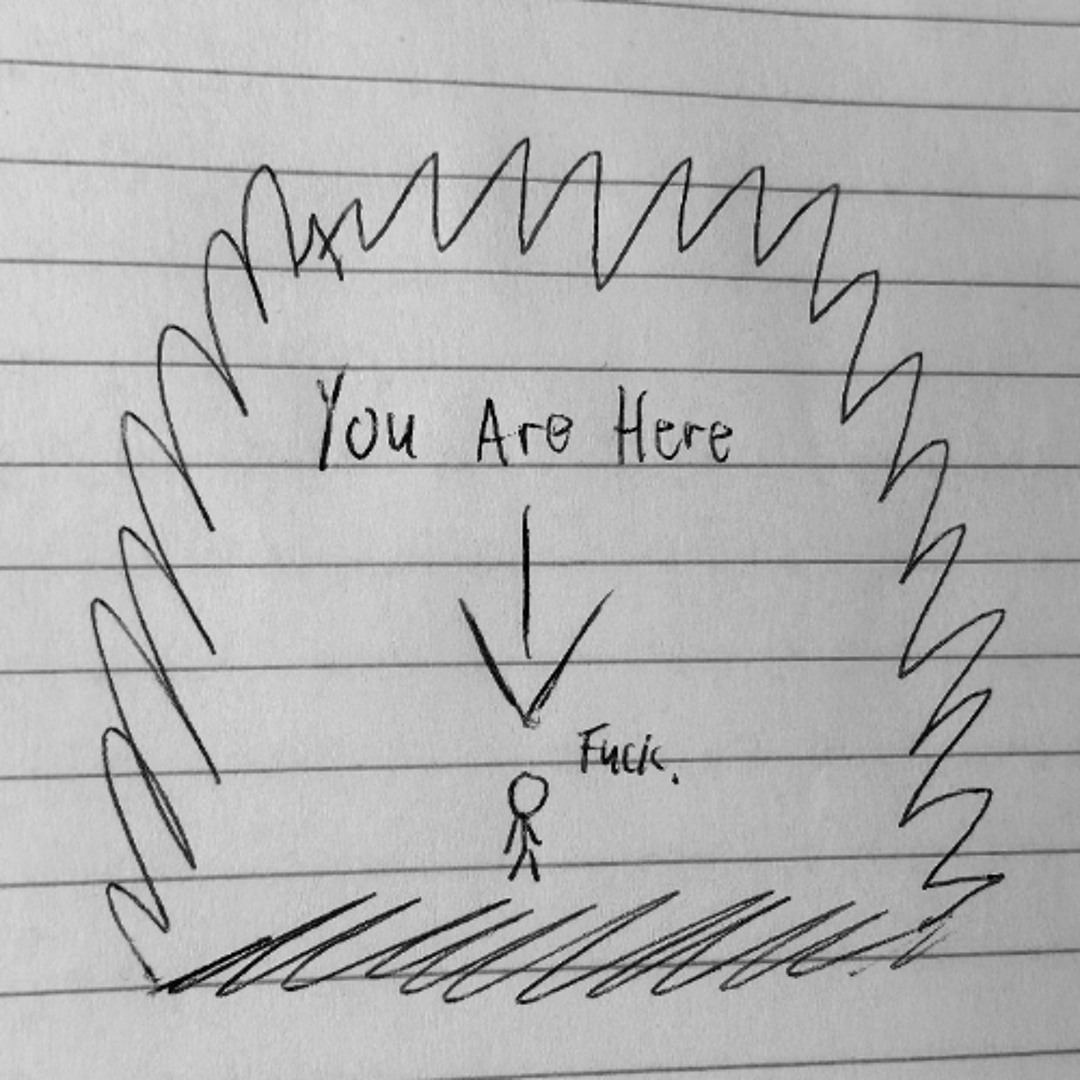 You Are Here
Fuck.